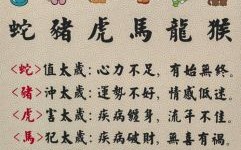 蛇豬虎馬龍猴
<蛇>值太歲：心力不足，有始無終。
<豬>沖太歲：運勢不好，情感低迷。
<虎>害太歲：疾病纏身，流年不佳。
<馬>犯太歲：疾病破財，無喜有禍。